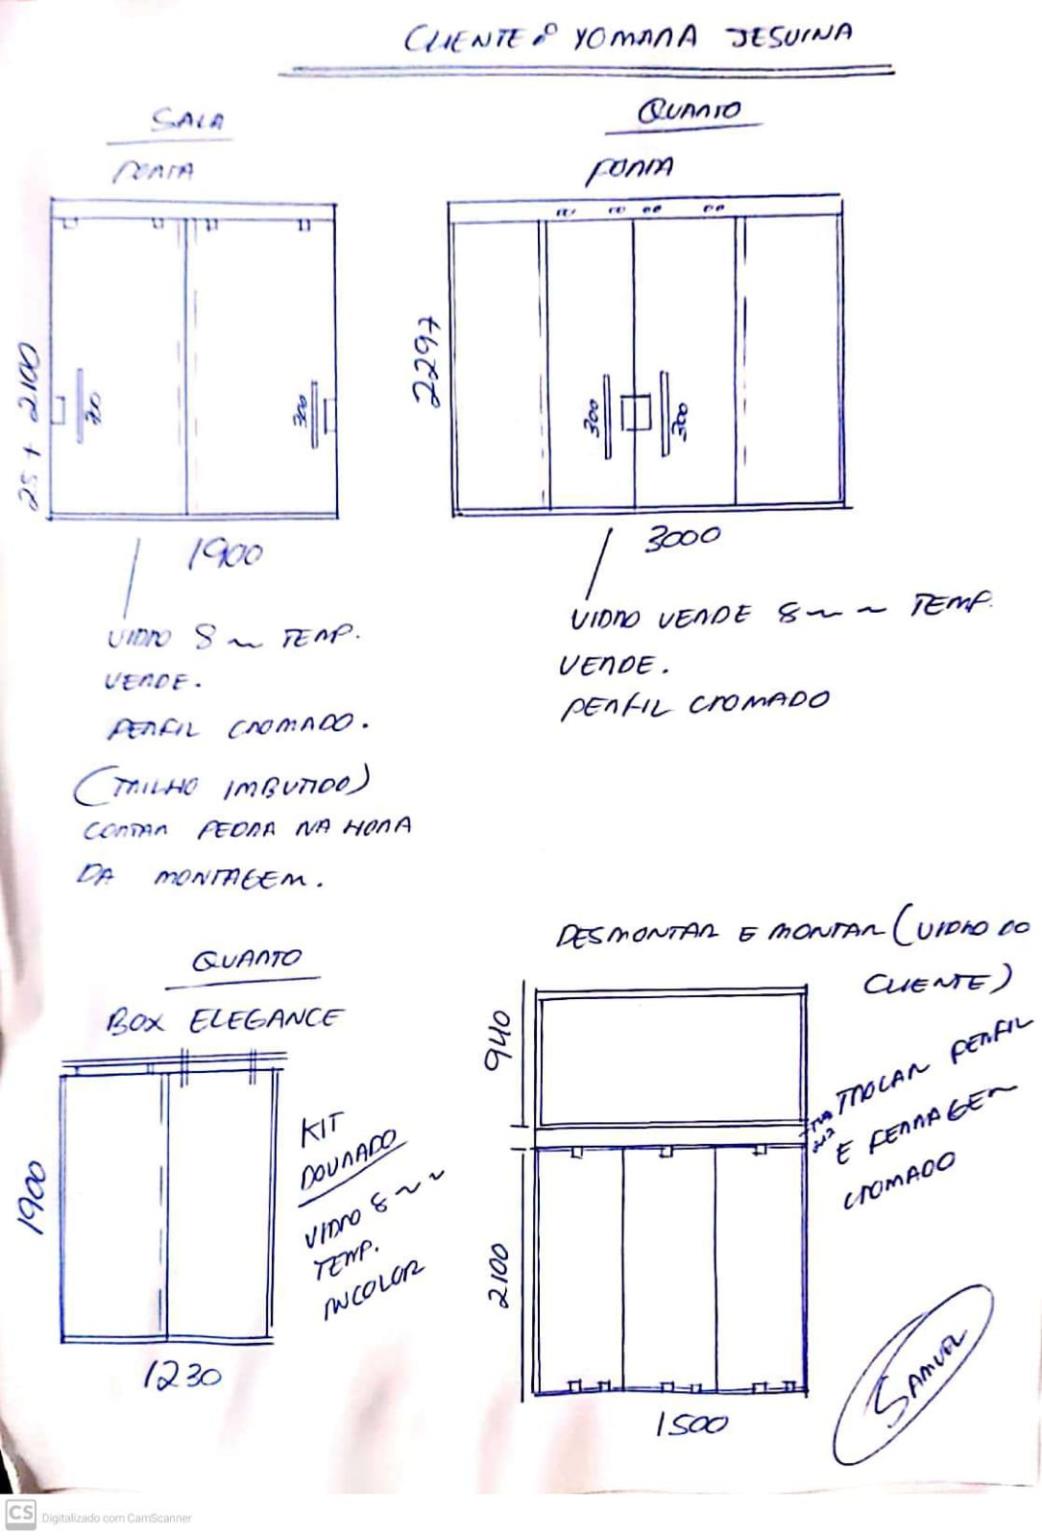 CLIENTE: YOMARA JESUINA
SALA
PORTA
25 + 2100
300
1900
VIDRO 8mm TEMP.
VERDE.
PERFIL CROMADO.
(TRILHO IMBUTIDO)
CORTAR PEDRA NA HORA
DA MONTAGEM.
QUARTO
PORTA
2297
300
300
3000
VIDRO VERDE 8mm TEMP.
VERDE.
PERFIL CROMADO
QUARTO
BOX ELEGANCE
1900
1230
KIT
DOURADO
VIDRO 8mm
TEMP.
INCOLOR
DESMONTAR E MONTAR (VIDRO DO
CLIENTE)
940
2100
1500
TROCAR PERFIL
E FERRAGEM
CROMADO
SAMUEL
CS Digitalizado com CamScanner